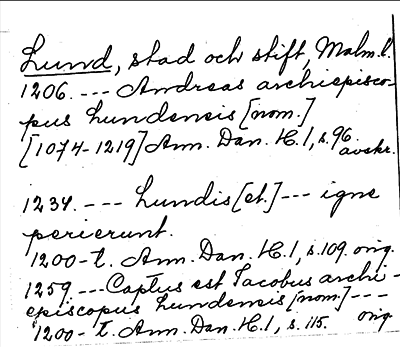 Lund, stad och stift, Malm. l.
1206. --- Andreas archiepisco-
pus Lundensis [nom.]
[1074-1219] Ann. Dan. H. 1, s. 96.
avskr.
1234. --- Lundis [et.] --- igne
perierunt.
1200-t. Ann. Dan. H. 1, s. 109. orig.
1259 --- Captus est Jacobus archi-
episcopus Lundensis [nom] ---
1200-t. Ann. Dan. H. 1, s. 115. orig.